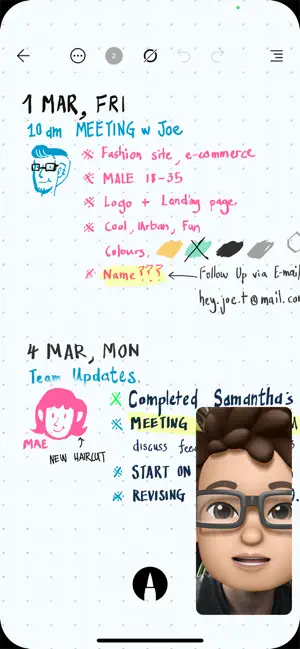 2
1 MAR, FRI
10 am MEETING w Joe
Fashion site, e-commerce
MALE 18-35
Logo + Landing page
Cool, Urban, Fun
Colours.
Name??? ← Follow Up via E-mail
hey.joe.t@mail.co
4 MAR, MON
Team Updates.
Completed Samantha's
MEETING
MAE
NEW HAIRCUT
discuss
START ON
REVISING